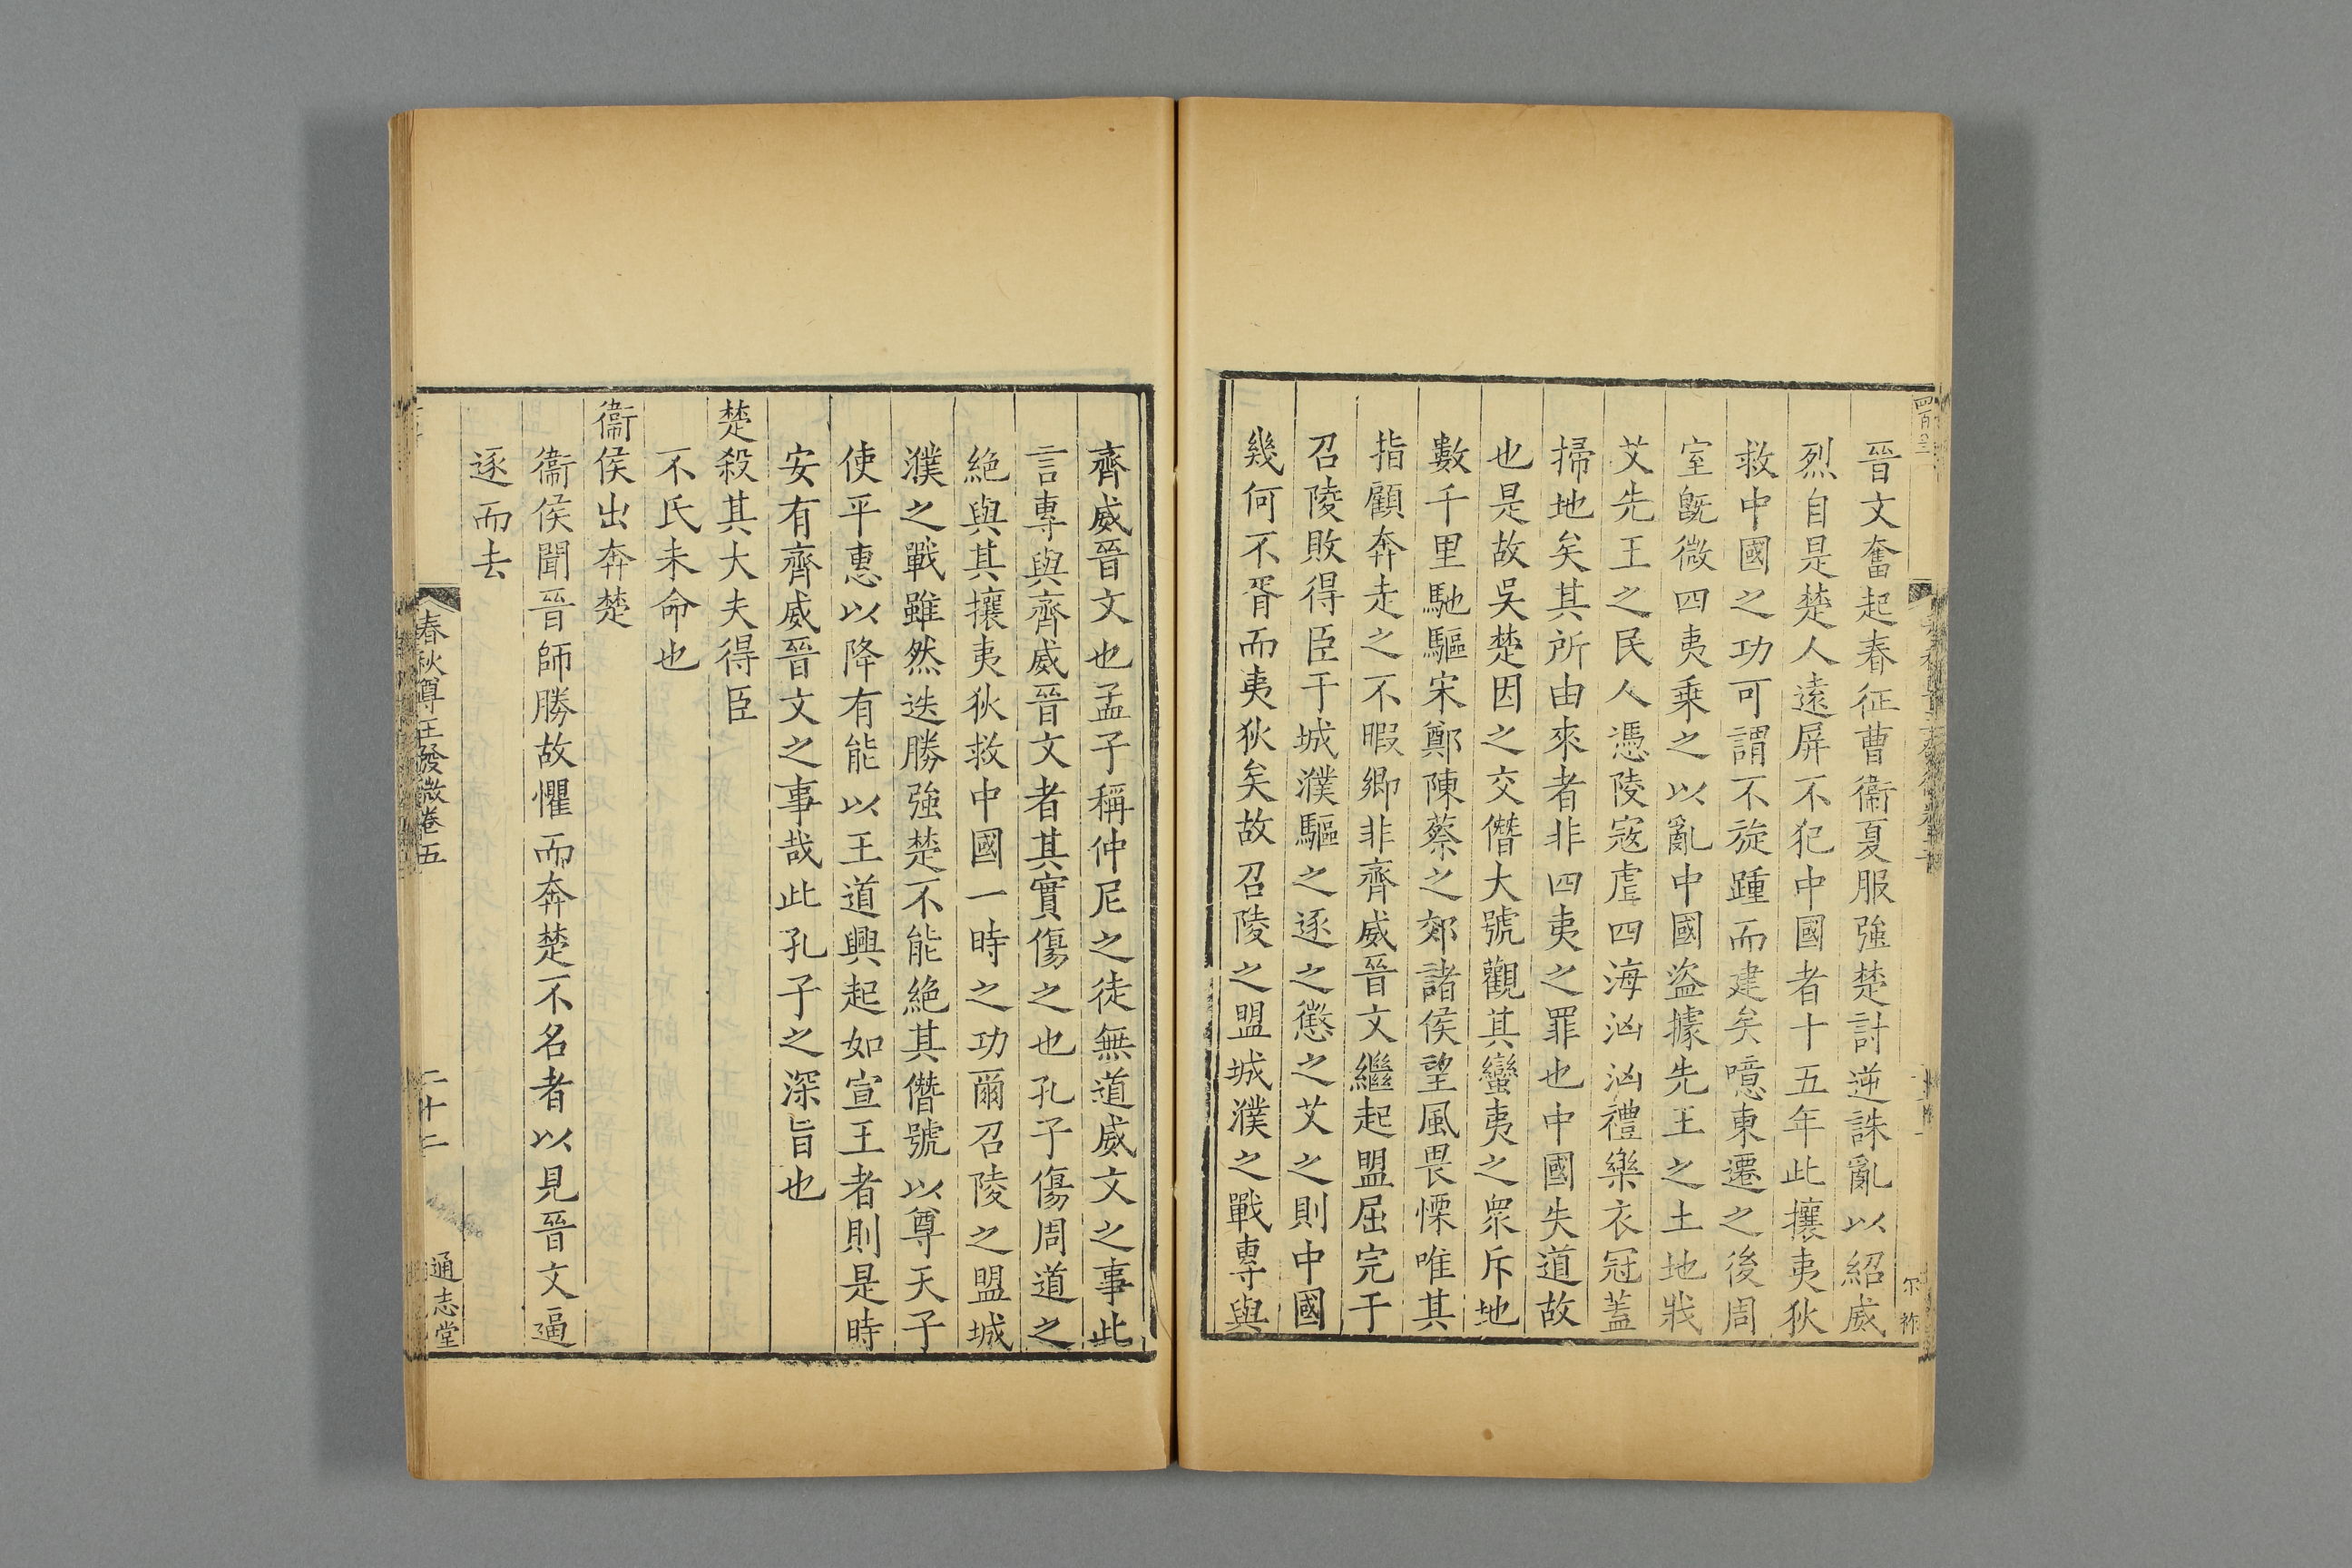 晉文奮起春征曹衞夏服強楚討逆誅亂以紹威
烈自是楚人遠屏不犯中國者十五年此攘夷狄
救中國之功可謂不旋踵而建矣噫東遷之後周
室旣微四夷乗之以亂中國盜據先王之土地戕
艾先王之民人憑陵寇虐四海洶洶禮樂衣冠蓋
掃地矣其所由來者非四夷之罪也中國失道故
也是故吳楚因之交僭大號觀其蠻夷之衆斥地
數千里馳驅宋鄭陳蔡之郊諸侯望風畏慄唯其
指顧奔走之不暇郷非齊威晉文繼起盟屈完于
召陵敗得臣于城濮驅之逐之懲之艾之則中國
幾何不胥而夷狄矣故召陵之盟城濮之戰專與
齊威晉文也孟子稱仲尼之徒無道威文之事此
言專與齊威晉文者其實傷之也孔子傷周道之
絶與其攘夷狄救中國一時之功爾召陵之盟城
濮之戰雖然迭勝強楚不能絶其僭號以尊天子
使平惠以降有能以王道興起如宣王者則是時
安有齊威晉文之事哉此孔子之深旨也
楚殺其大夫得臣
不氏未命也
衞侯出奔楚
衞侯聞晉師勝故懼而奔楚不名者以見晉文逼
逐而去
春秋尊王發微卷五
二十二
通志堂